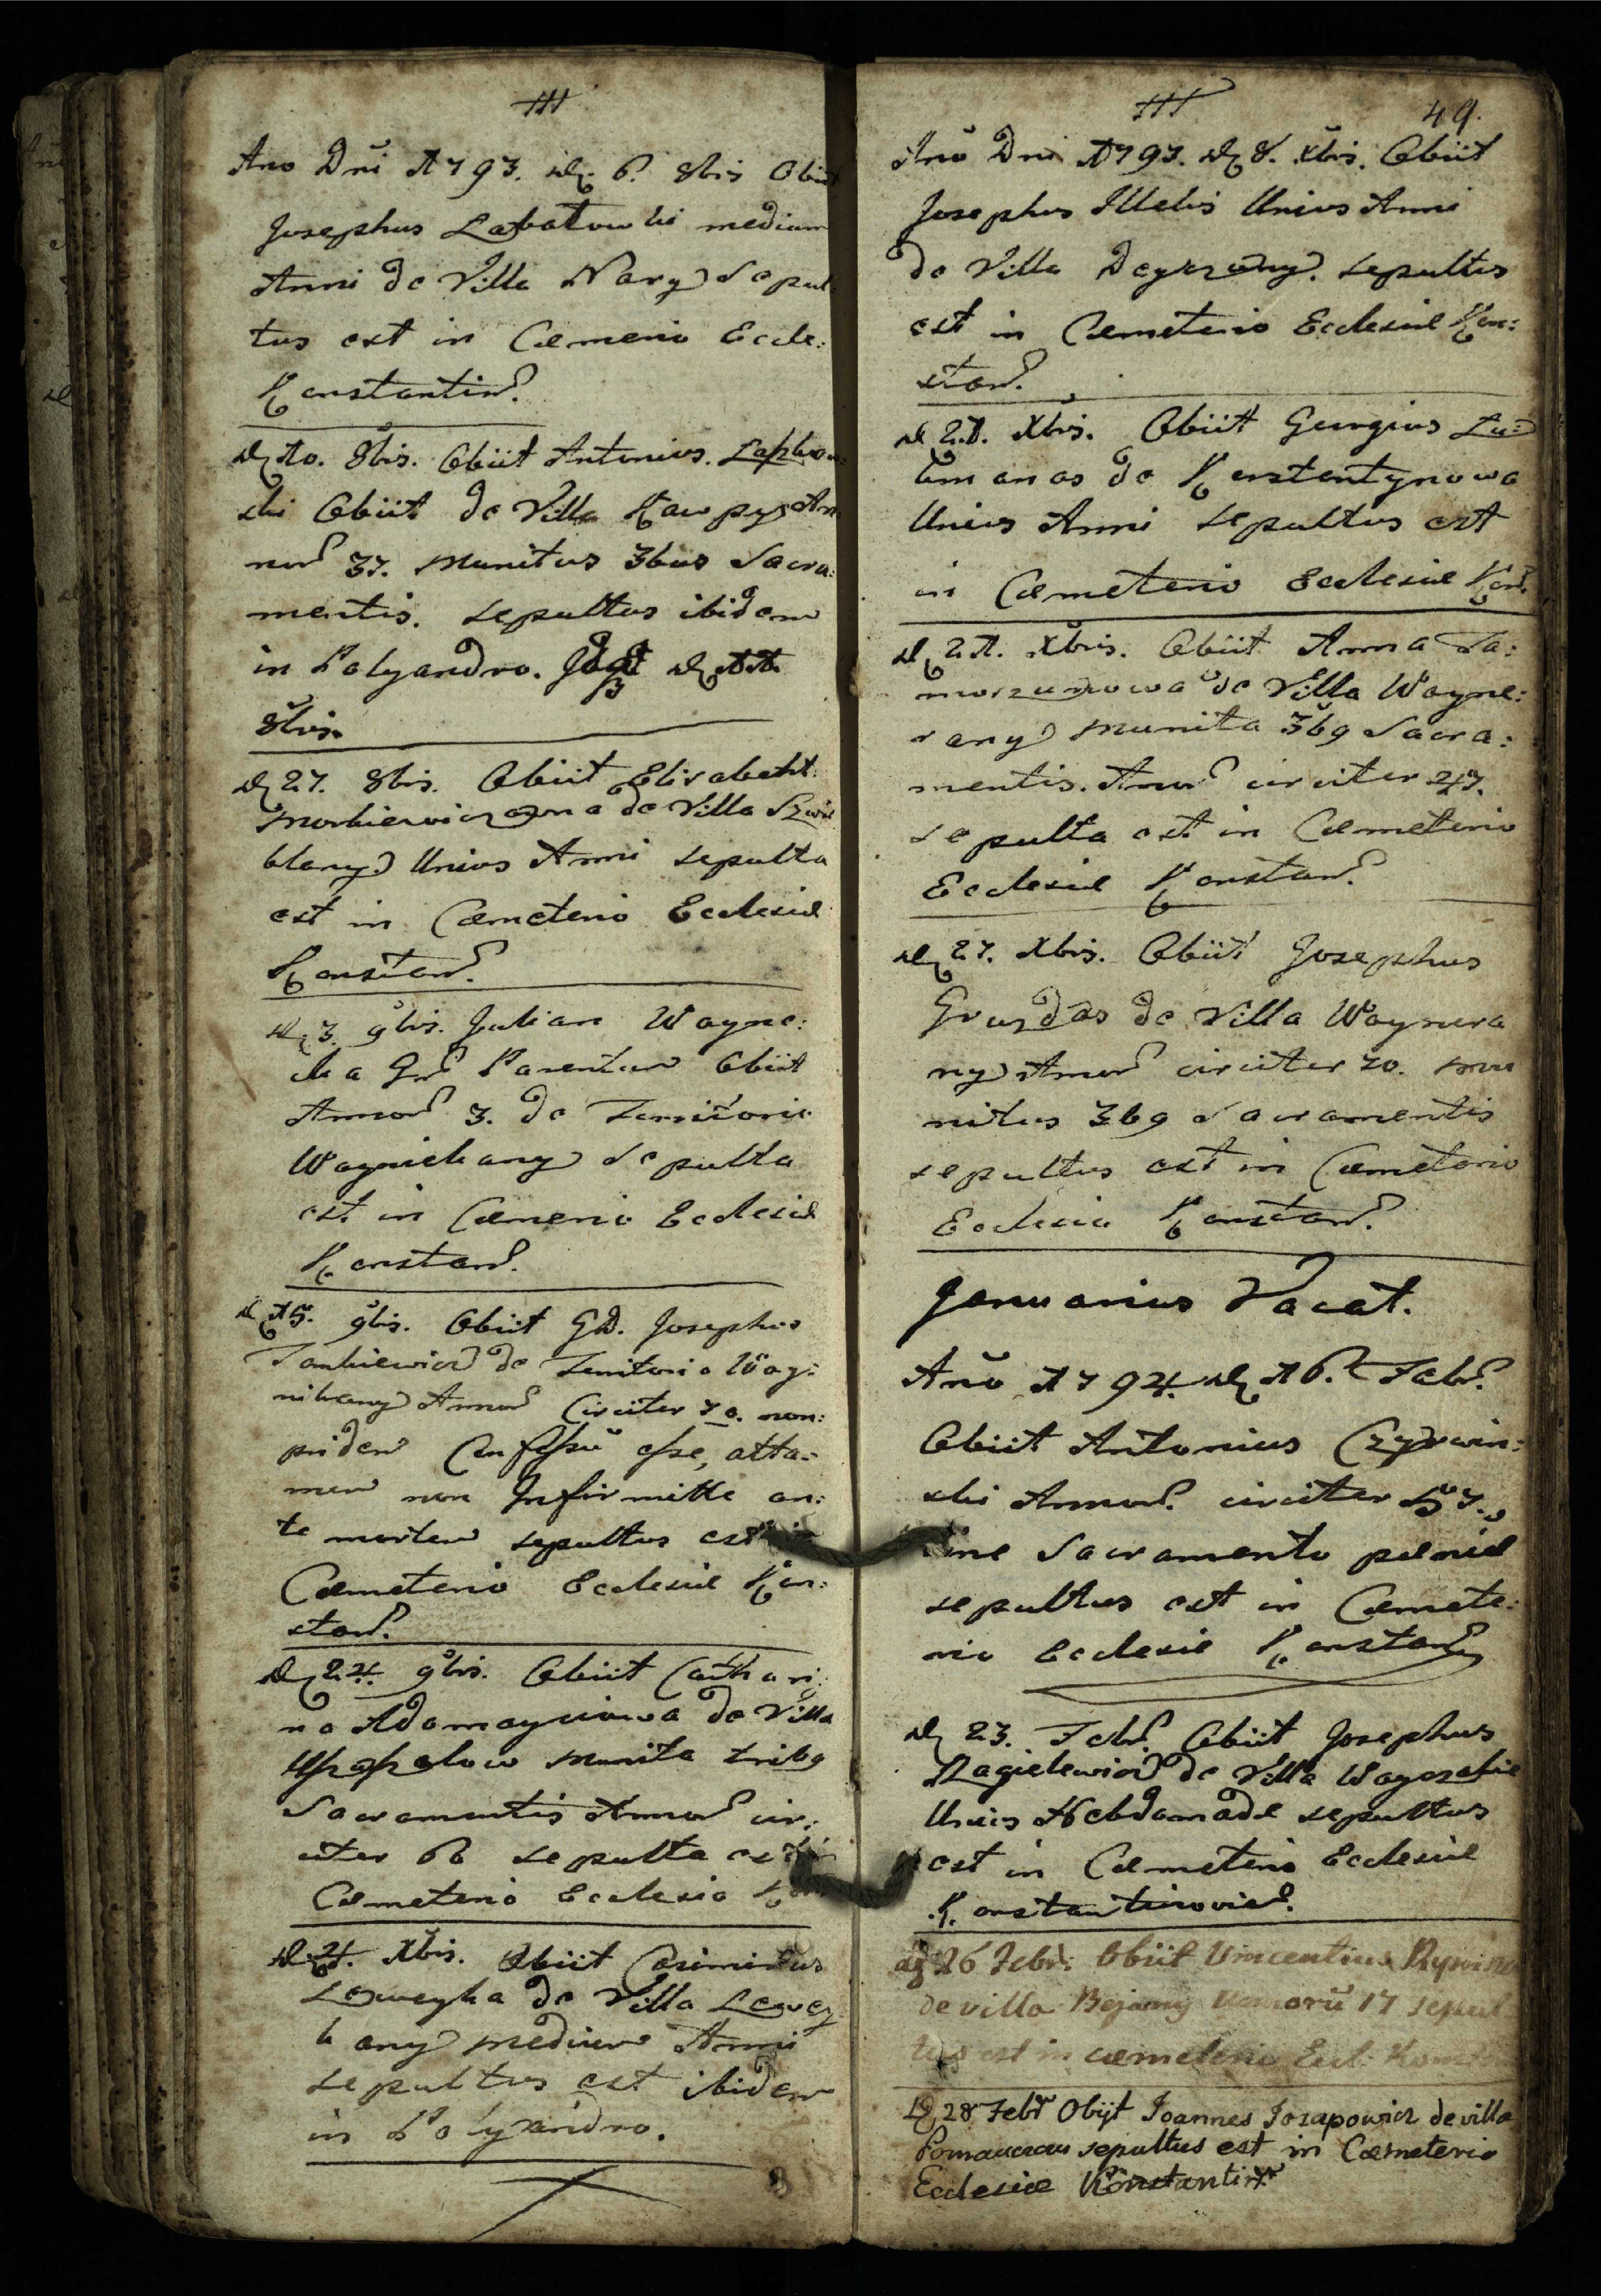 Ano Dni 1793. d. 6. 8bris Obiit
Josephus Labatowski medium
Anni de Villa Nary Sepul
tus est in Cœmenio Eccle:
Konstantin.
d. 10. 8bris. Obiit Antonius.
ski Obiit de Villa Kawpys An
nor 37. munitus 3bus Sacra:
mentis. sepultus ibidem
in Polyandro. d. 11.
8bris.
d. 27. 8bris. Obiit Elisabeht
Morkiewiczowna de Villa
blany Unius Anni sepulta
est in Cœmeterio Ecclesiæ
Konstan.
d. 3. 9bris. Julian Wayne:
Parentum Obiit
Annor 3. de Territorio
Waynickany Sepulta
est in Cœmenio Ecclesiæ
Konstan.
d. 15. 9bris. Obiit GD. Josephus
Jankiewicz de Territorio Way:
nikany Annor Circiter 70. non:
pridem Confessū esse, atta:
men non an:
te mortem sepultus est in
Cœmeterio Ecclesiæ Kon:
stan.
d. 24. 9bris. Obiit Cathari:
na Adamayciowa de Villa
munita trib9
Sacramentis Annor cir:
citer 66 sepulta est in
Cœmeterio Ecclesia Kon
d. 4. Xbris. Obiit Casimirus
de Villa
kany medium Anni
sepultus est ibidem
in Polyandro.
49.
Ano Dni 1793. d. 8. Xbris. Obiit
Josephus Illelis Unius Anni
de Villa sepultus
est in Cœmeterio Ecclesiæ Kon:
stan.
d. 21. Xbris. Obiit Georgius Lu:
kmanas de Konstantynowa
Unius Anni sepultus est
in Cœmeterio Ecclesiæ Kon.
d. 21. Xbris. Obiit Anna
de Villa Wayne:
rany munita 3b9 Sacra:
mentis. Annor circiter 47.
sepulta est in Cœmeterio
Ecclesiæ Konstan.
d. 27. Xbris. Obiit Josephus
Gruzdas de Villa Waynera
ny Annor circiter 70. mu
nitus 3b9 Sacramentis
sepultus est in Cœmeterio
Ecclesia Konstan.
Januarius Vacat.
Ano 1794 d. 16. Febr.
Obiit Antonius Czyrwin:
ski Annor. circiter 57.
sine Sacramento pœniæ
sepultus est in Cœmete:
rio Ecclesiæ Konstan
d. 23. Febr. Obiit Josephus
Nagielewicz de Villa
Unius Hebdomadæ sepultus
est in Cœmeterio Ecclesiæ
Konstantinovien.
d. 26 Febr: Obiit Vincentius
de villa Bejany annorū 17 sepul
tus est in cœmeterio Eccl: Konst
D. 28 Febr Obijt Joannes Josapowicz de villa
sepultus est in Cœmeterio
Ecclesiæ Konstantin